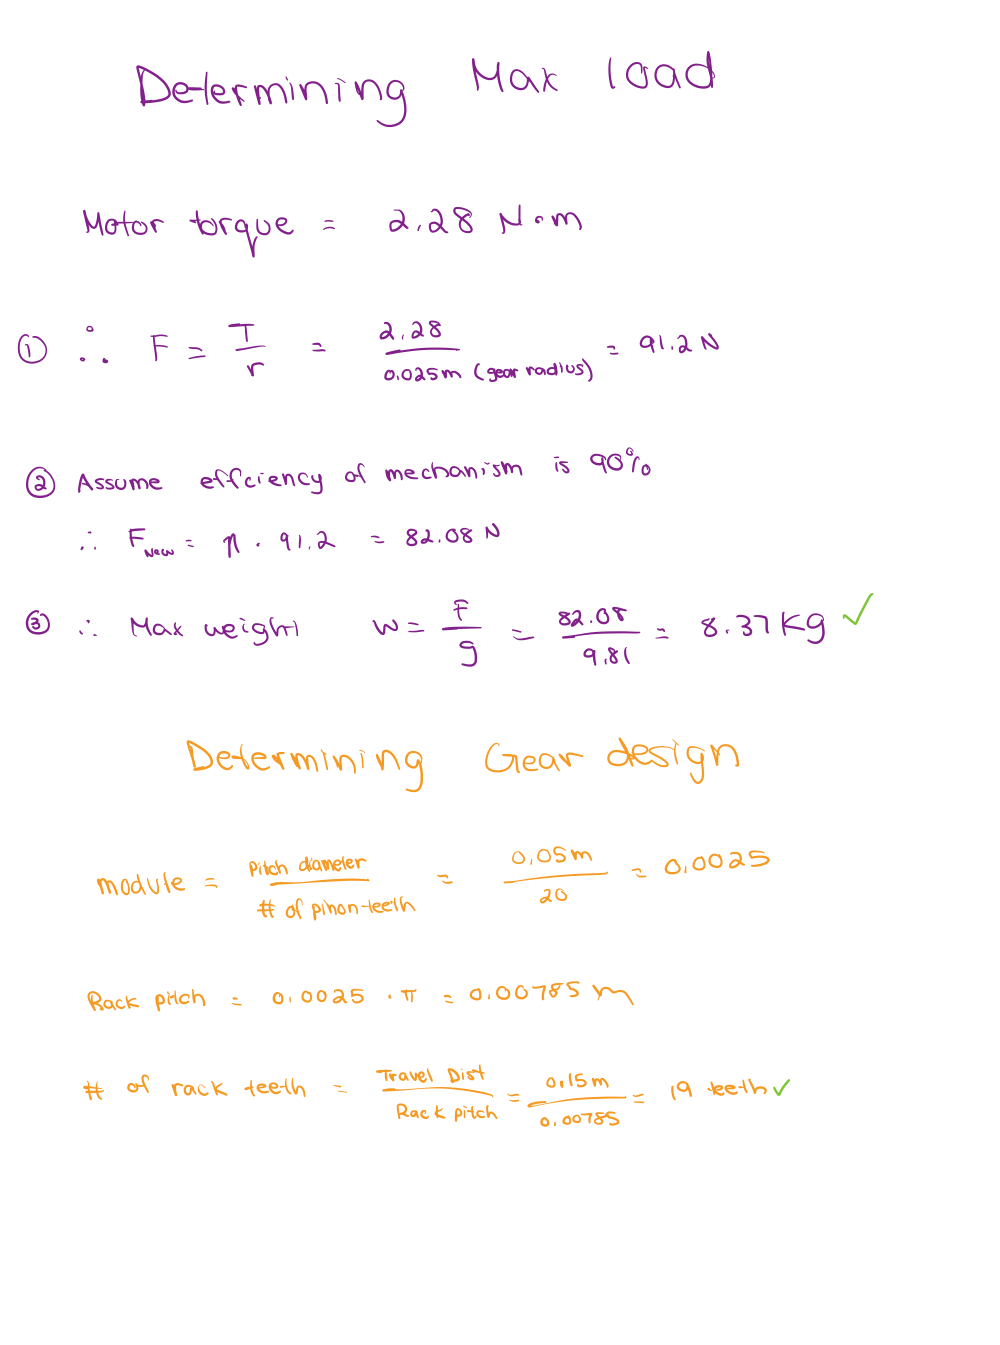 Determining Max load
Motor torque = 2.28 N·m
① ∴ F = T/r = 2.28/0.025m (gear radius) = 91.2 N
② Assume effciency of mechanism is 90%
∴ F_New = η · 91.2 = 82.08 N
③ ∴ Max weight W = F/g = 82.08/9.81 = 8.37 Kg ✓
Determining Gear design
module = Pitch diameter/# of pinon-teeth = 0.05m/20 = 0.0025
Rack pitch = 0.0025 · π = 0.00785 m
# of rack teeth = Travel Dist/Rack pitch = 0.15m/0.00785 = 19 teeth ✓